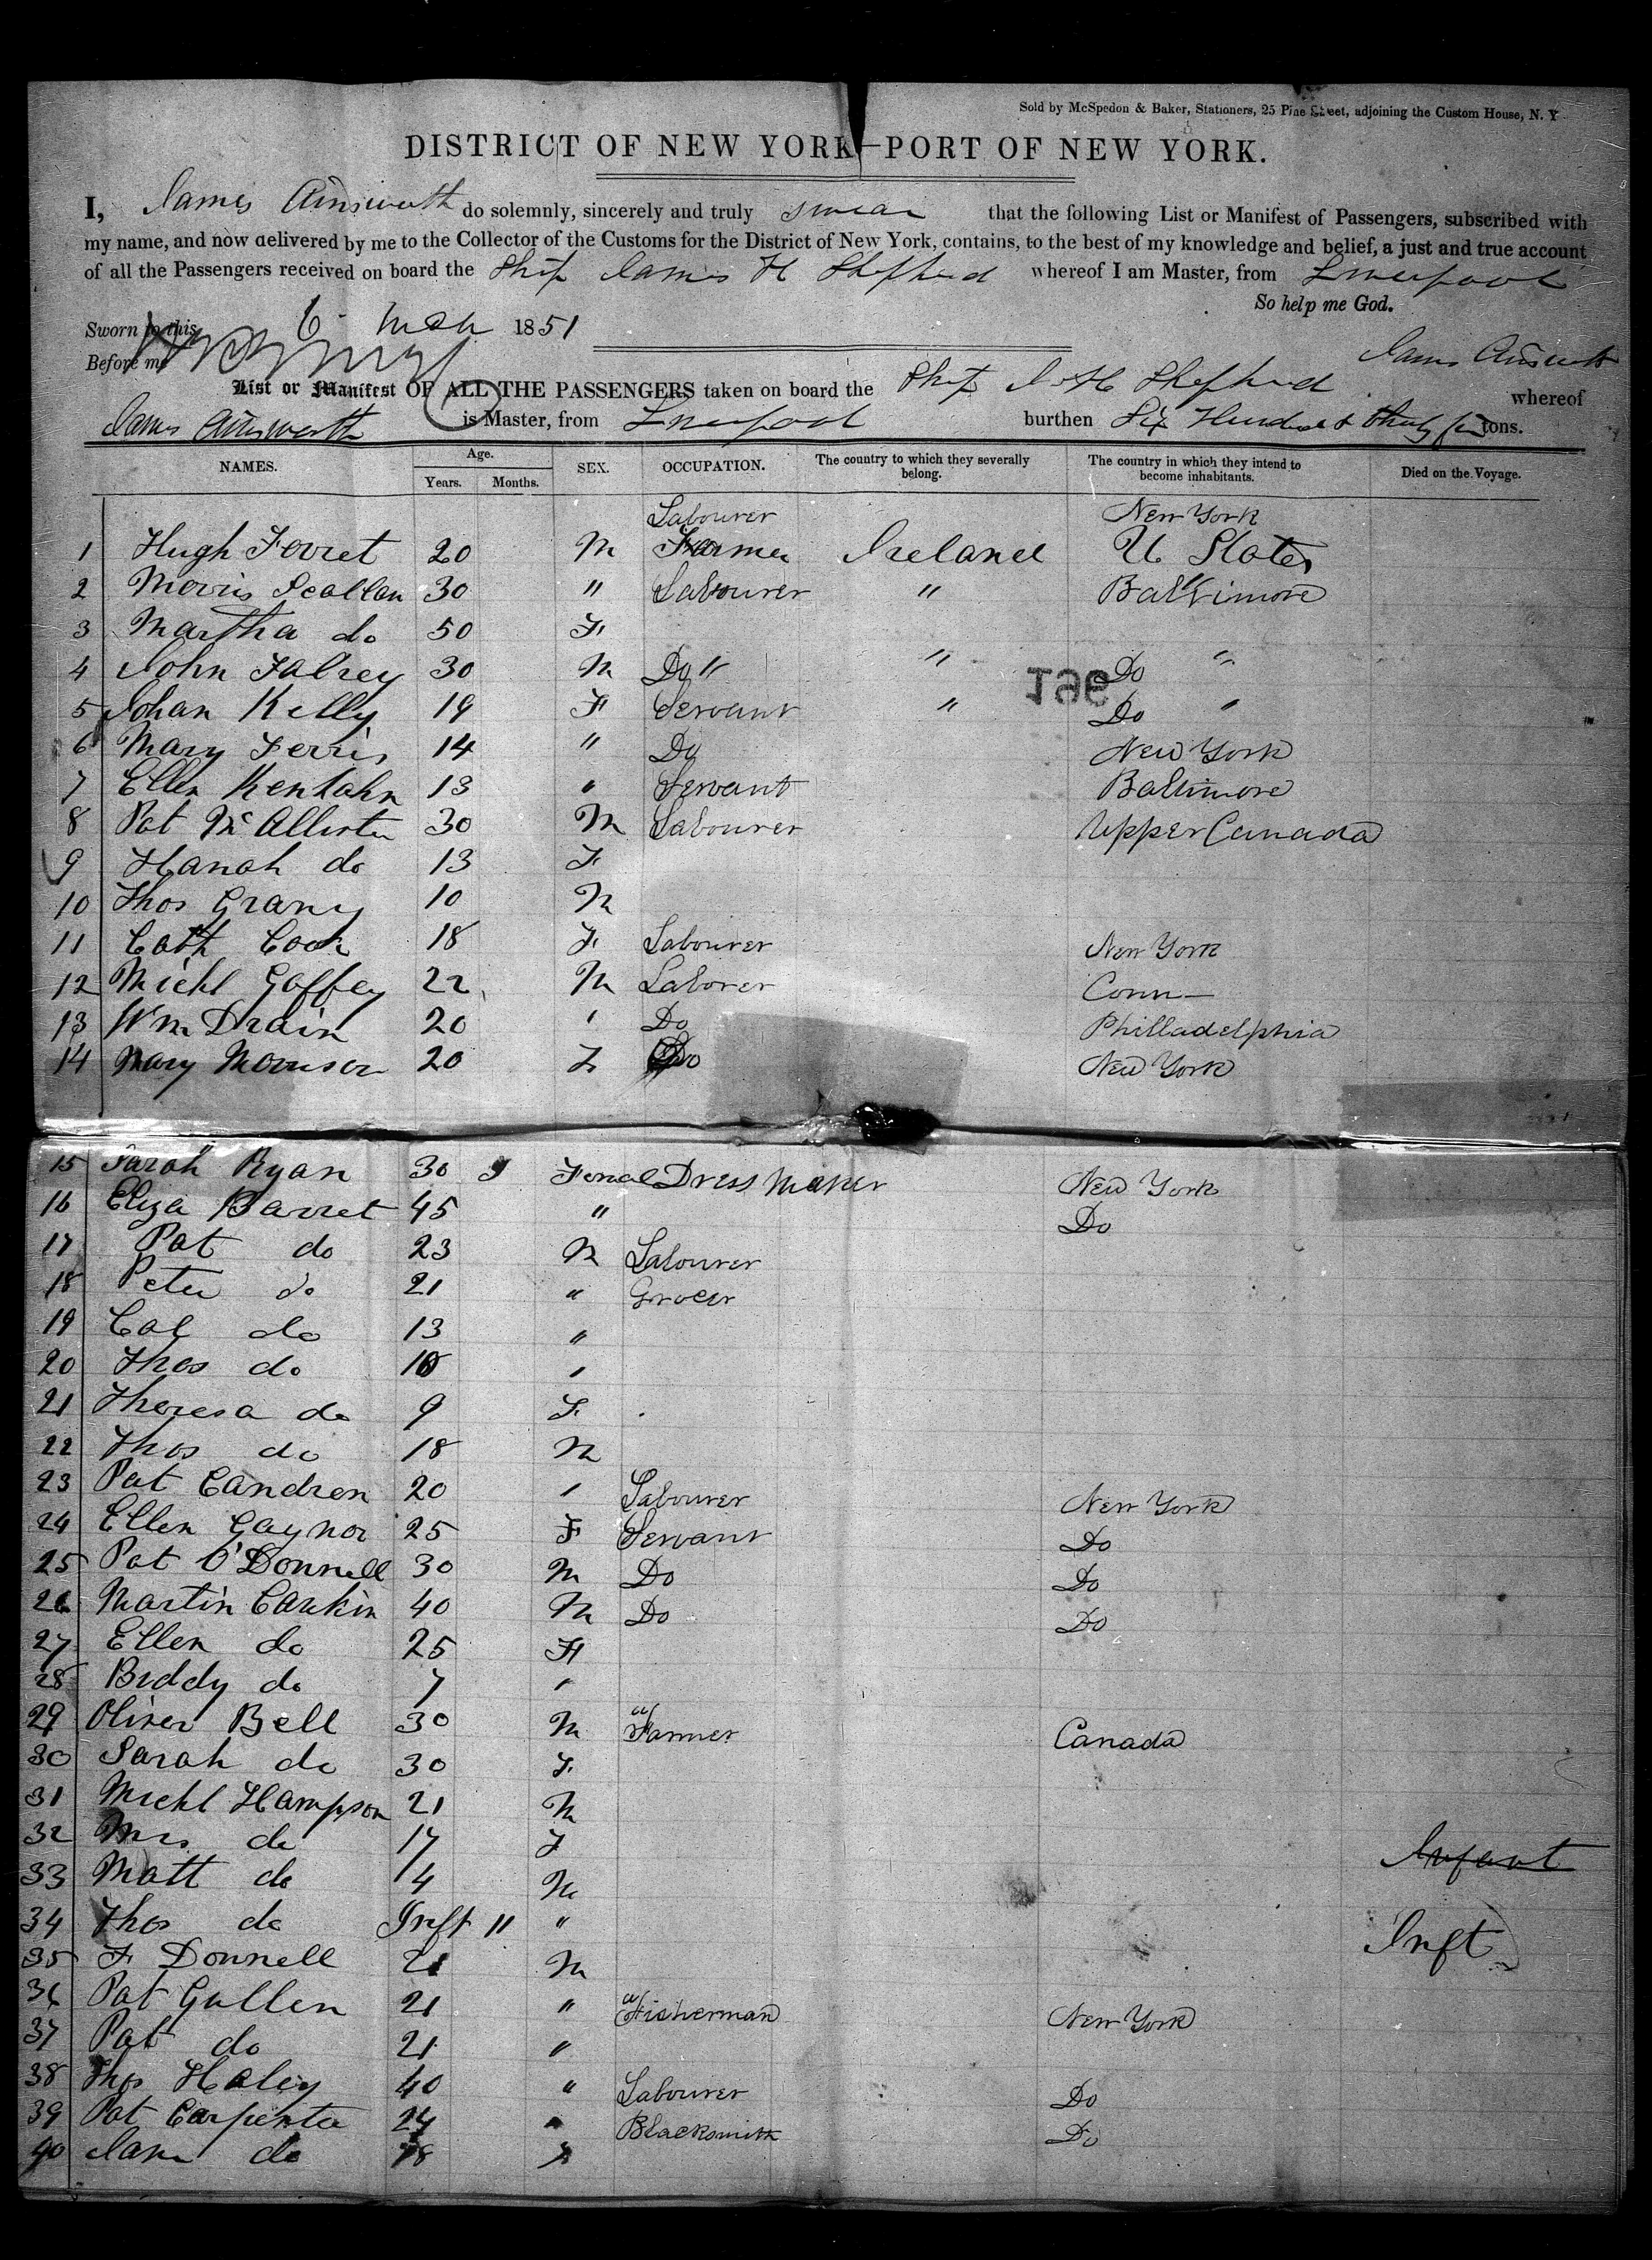 Sold by McSpedon & Baker, Stationers, 25 Pine Street, adjoining the Custom House, N. Y
DISTRICT OF NEW YORK—PORT OF NEW YORK.
I, James Ainsworth do solemnly, sincerely and truly swear that the following List or Manifest of Passengers, subscribed with
my name, and now delivered by me to the Collector of the Customs for the District of New York, contains, to the best of my knowledge and belief, a just and true account
of all the Passengers received on board the Ship James H Shepherd whereof I am Master, from Liverpool
So help me God.
Sworn to this 6 Mch 1851
Before me
James Ainsworth
List or Manifest OF ALL THE PASSENGERS taken on board the Ship J H Shepherd whereof
James Ainsworth is Master, from Liverpool burthen Six Hundred & thirty tons.
NAMES. Age. Years. Months. SEX. OCCUPATION. The country to which they severally belong. The country in which they intend to become inhabitants. Died on the Voyage.
Labourer New York
1 Hugh Forret 20 M Farmer Ireland U States
2 Morris Scallan 30 " Labourer " Baltimore
3 Martha do 50 F
4 John Falrey 30 M Do " " Do "
196
5 Johan Kelly 19 F Servant " Do "
6 Mary Ferris 14 " Do New York
7 Ellen 13 " Servant Baltimore
8 Pat McAllister 30 M Labourer Upper Canada
9 Hanah do 13 F
10 Thos Grany 10 M
11 Cath Cook 18 F Labourer New York
12 Michl Gaffey 22 M Laborer Conn—
13 Wm Drain 20 " Do Philladelphia
14 Mary Morrison 20 F Do New York
15 Sarah Ryan 30 Femal Dress Maker New York
16 Eliza Barret 45 " Do
17 Pat do 23 M Labourer
18 Peter do 21 " Grocer
19 Cal do 13 "
20 Thos do 10 "
21 Theresa do 9 F
22 Thos do 18 M
23 Pat Candren 20 " Labourer New York
24 Ellen Gaynor 25 F Servant Do
25 Pat O'Donnell 30 M Do Do
26 Martin Larkin 40 M Do Do
27 Ellen do 25 F
28 Biddy do 7 "
29 Oliver Bell 30 M Farmer Canada
30 Sarah do 30 F
31 Michl Hampson 21 M
32 Mrs do 17 F Infant
33 Matt do 4 M
34 Thos do Inft 11 " Inft
35 F Donnell 21 M
36 Pat Gullen 21 " Fisherman New York
37 Pat do 21 "
38 Thos Haley 40 " Labourer Do
39 Pat Carpenter 24 " Blacksmith Do
40 Jane do 18